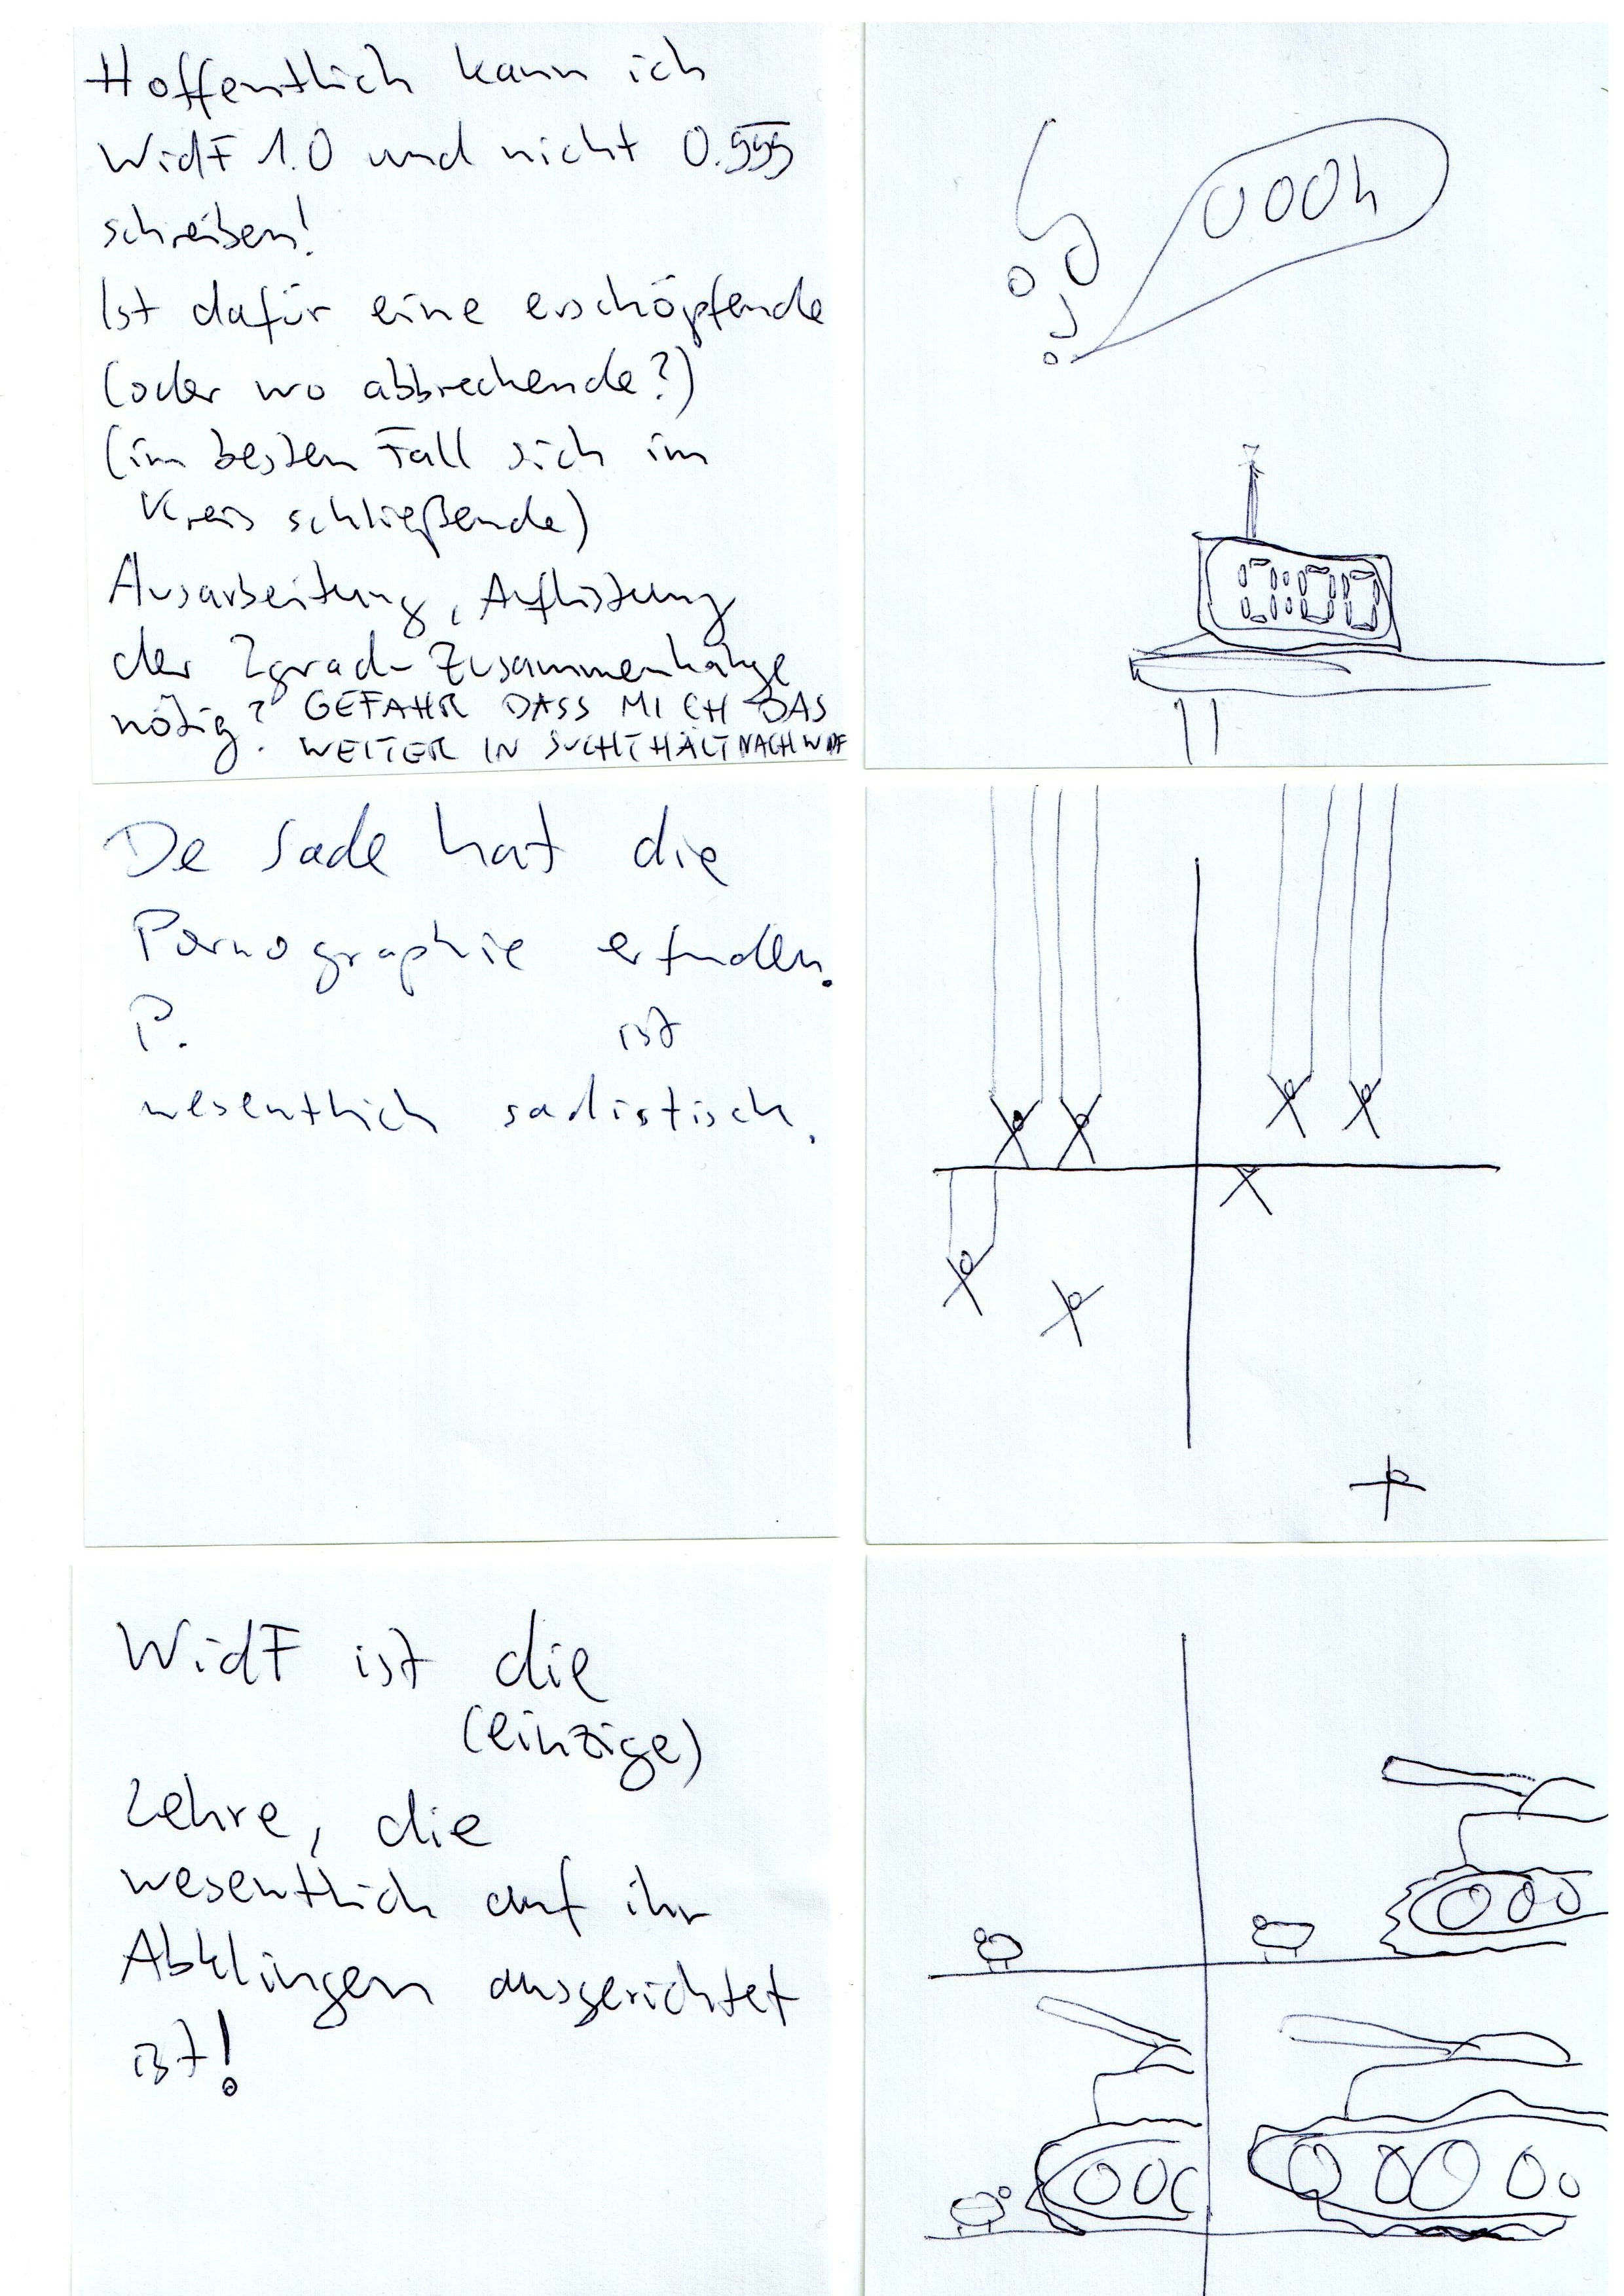 Hoffentlich kann ich
WidF 1.0 und nicht 0.999
schreiben!
Ist dafür eine erschöpfende
(oder wo abbrechende?)
(im besten Fall sich im
Kreis schließende)
Ausarbeitung, Auflistung
der Zusammenhänge
nötig? GEFAHR DASS MICH DAS
WEITER IN SUCHT HÄLT NACH WIDF
OOOh
0:00
De Sade hat die
Pornographie erfunden.
P. ist
wesentlich sadistisch.
WidF ist die
(einzige)
Lehre, die
wesentlich auf ihr
Abklingen ausgerichtet
ist!